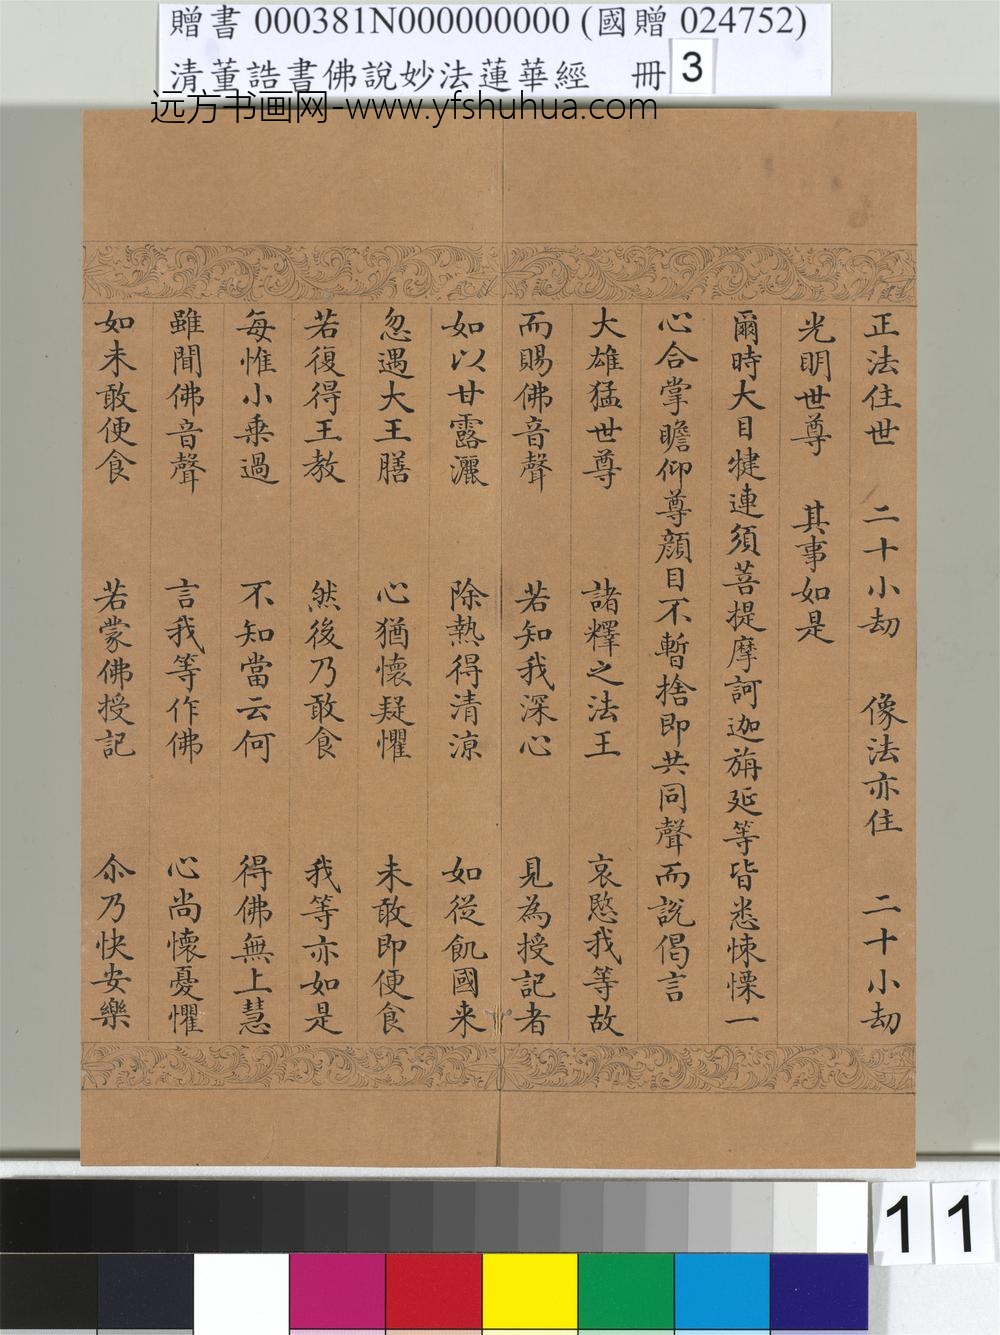 贈書 000381N000000000 (國贈 024752)
清董誥書佛說妙法蓮華經 冊 3
远方书画网-www.yfshuhua.com
正法住世 二十小劫 像法亦住 二十小劫
光明世尊 其事如是
爾時大目犍連須菩提摩訶迦旃延等皆悉悚慄一
心合掌瞻仰尊顏目不暫捨即共同聲而說偈言
大雄猛世尊 諸釋之法王 哀愍我等故
而賜佛音聲 若知我深心 見為授記者
如以甘露灑 除熱得清涼 如從飢國来
忽遇大王膳 心猶懷疑懼 未敢即便食
若復得王教 然後乃敢食 我等亦如是
每惟小乘過 不知當云何 得佛無上慧
雖聞佛音聲 言我等作佛 心尚懷憂懼
如未敢便食 若蒙佛授記 尒乃快安樂
11